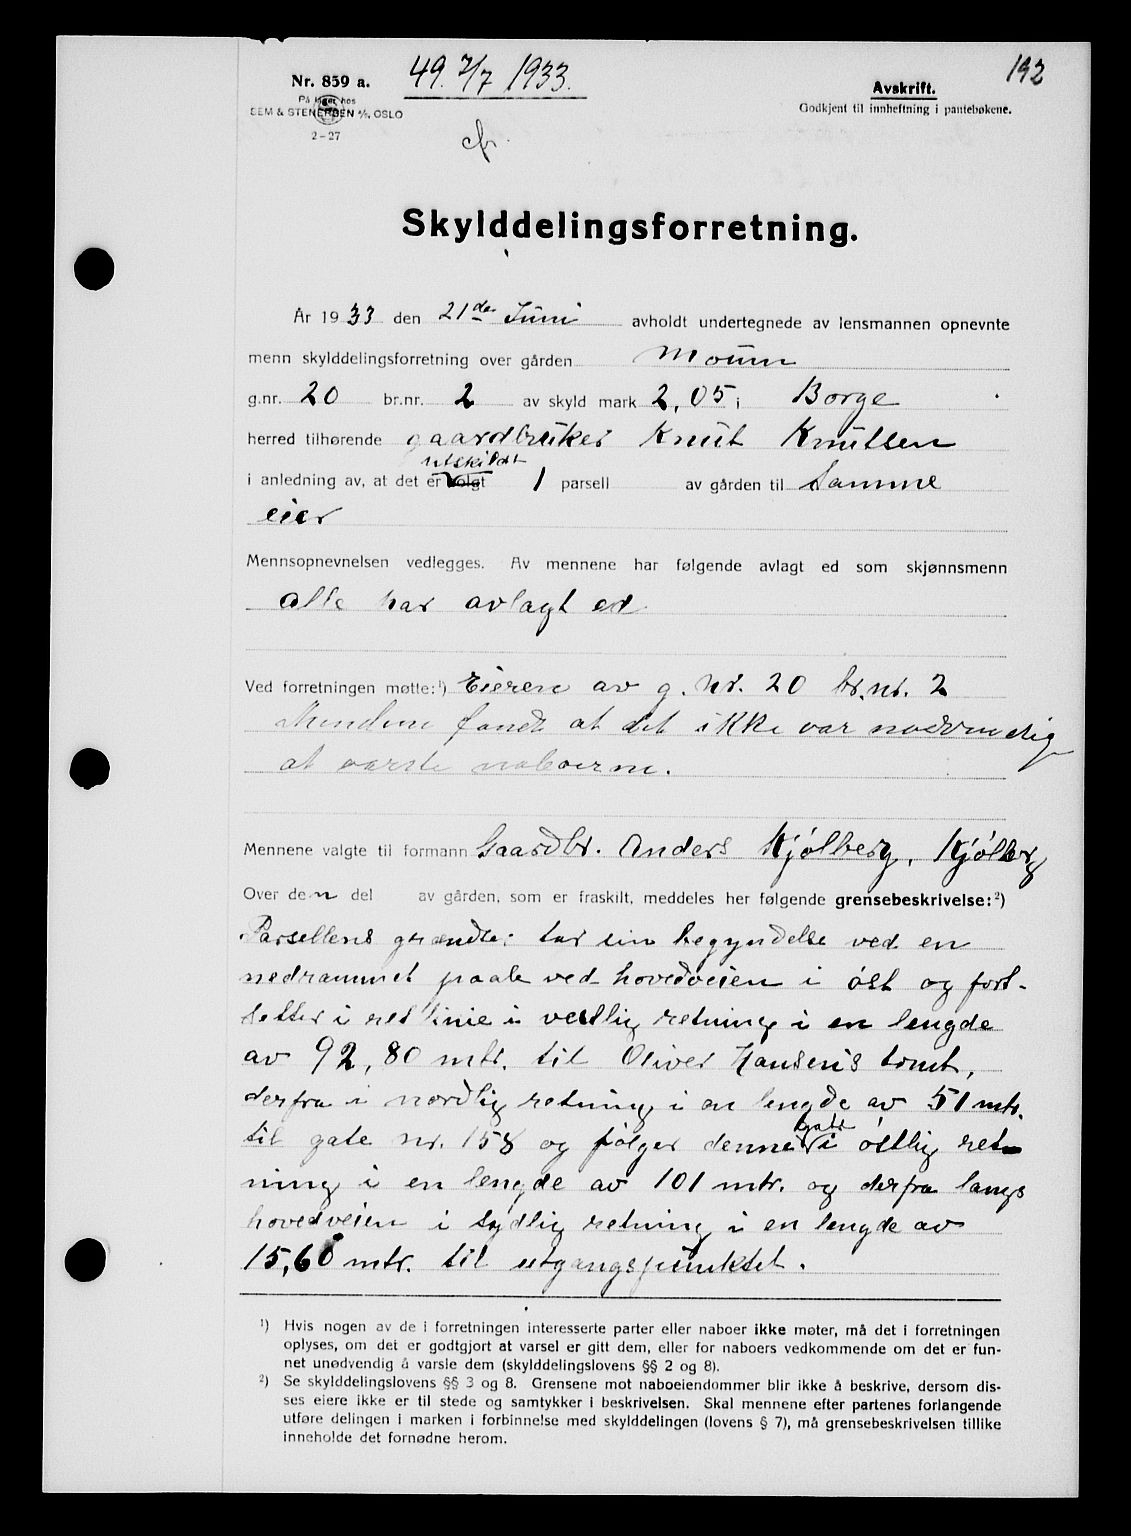 Nr. 859 a.
49. 7/7 1933.
192
På lager hos
SEM & STENERSEN A/S, OSLO
2-27
Avskrift.
Godkjent til innheftning i pantebøkene.
cfr.
Skylddelingsforretning.
År 1933 den 21de Juni avholdt undertegnede av lensmannen opnevnte
menn skylddelingsforretning over gården Moum
g.nr. 20 br.nr. 2 av skyld mark 2,05 i Borge
herred tilhørende gaardbruker Knut Knutsen
utskildt
i anledning av, at det er solgt 1 parsell av gården til Samme
eier
Mennsopnevnelsen vedlegges. Av mennene har følgende avlagt ed som skjønnsmenn
alle har avlagt ed.
Ved forretningen møtte:¹) Eieren av g. nr. 20 br.nr. 2
Mendene fandt at det ikke var nødvendig
at varsle naboerne.
Mennene valgte til formann Gaardbr. Anders Kjølberg, Kjølberg
Over den del av gården, som er fraskilt, meddeles her følgende grensebeskrivelse:²)
Parsellens grændse: tar sin begyndelse ved en
nedrammet paale ved hovedveien i øst og fort-
setter i ret linie i vestlig retning i en lengde
av 92,80 mtr. til Oliver Hansens tomt,
derfra i nordlig retning i en lengde av 51 mtr.
gate
til gate nr. 158 og følger denne i østlig ret-
ning i en lengde av 101 mtr. og derfra langs
hovedveien i sydlig retning i en lengde av
15,60 mtr. til utgangspunktet.
¹) Hvis nogen av de i forretningen interesserte parter eller naboer ikke møter, må det i forretningen
oplyses, om det er godtgjort at varsel er gitt dem, eller for naboers vedkommende om det er fun-
net unødvendig å varsle dem (skylddelingslovens §§ 2 og 8).
²) Se skylddelingslovens §§ 3 og 8. Grensene mot naboeiendommer blir ikke å beskrive, dersom dis-
ses eiere ikke er til stede og samtykker i beskrivelsen. Skal mennene efter partenes forlangende
utføre delingen i marken i forbinnelse med skylddelingen (lovens § 7), må grensebeskrivelsen tillike
inneholde det fornødne herom.